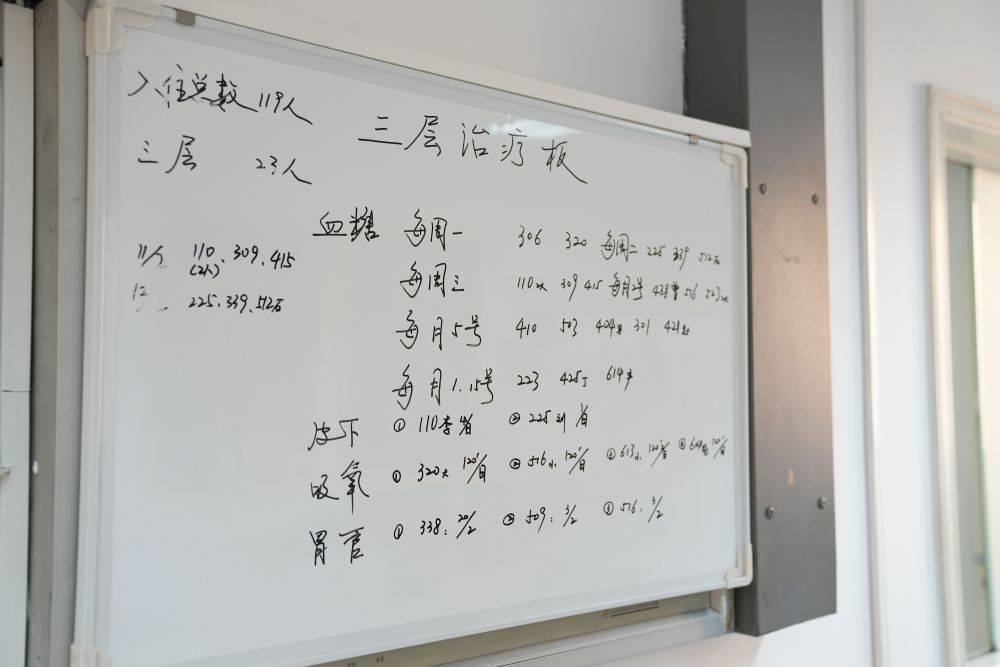 入住总数 119人
三层 23人
三层治疗板
11/ 110. 309. 415
(2人)
12 225. 339. 512右
血糖 每周一 306 320 每周二 225 339 512右
每周三 110 309 415 每月2号 438 516 523
每月5号 410 503 404 301 421
每月1.15号 223 425 614
皮下 ① 110李 ② 225刘
吸氧 ① 320大 120'/日 ② 516小 120'/日 ③ 613小 120'/日 ④ 120'/日
胃管 ① 338: 20/2 ② 509: 3/2 ③ 516: 3/2